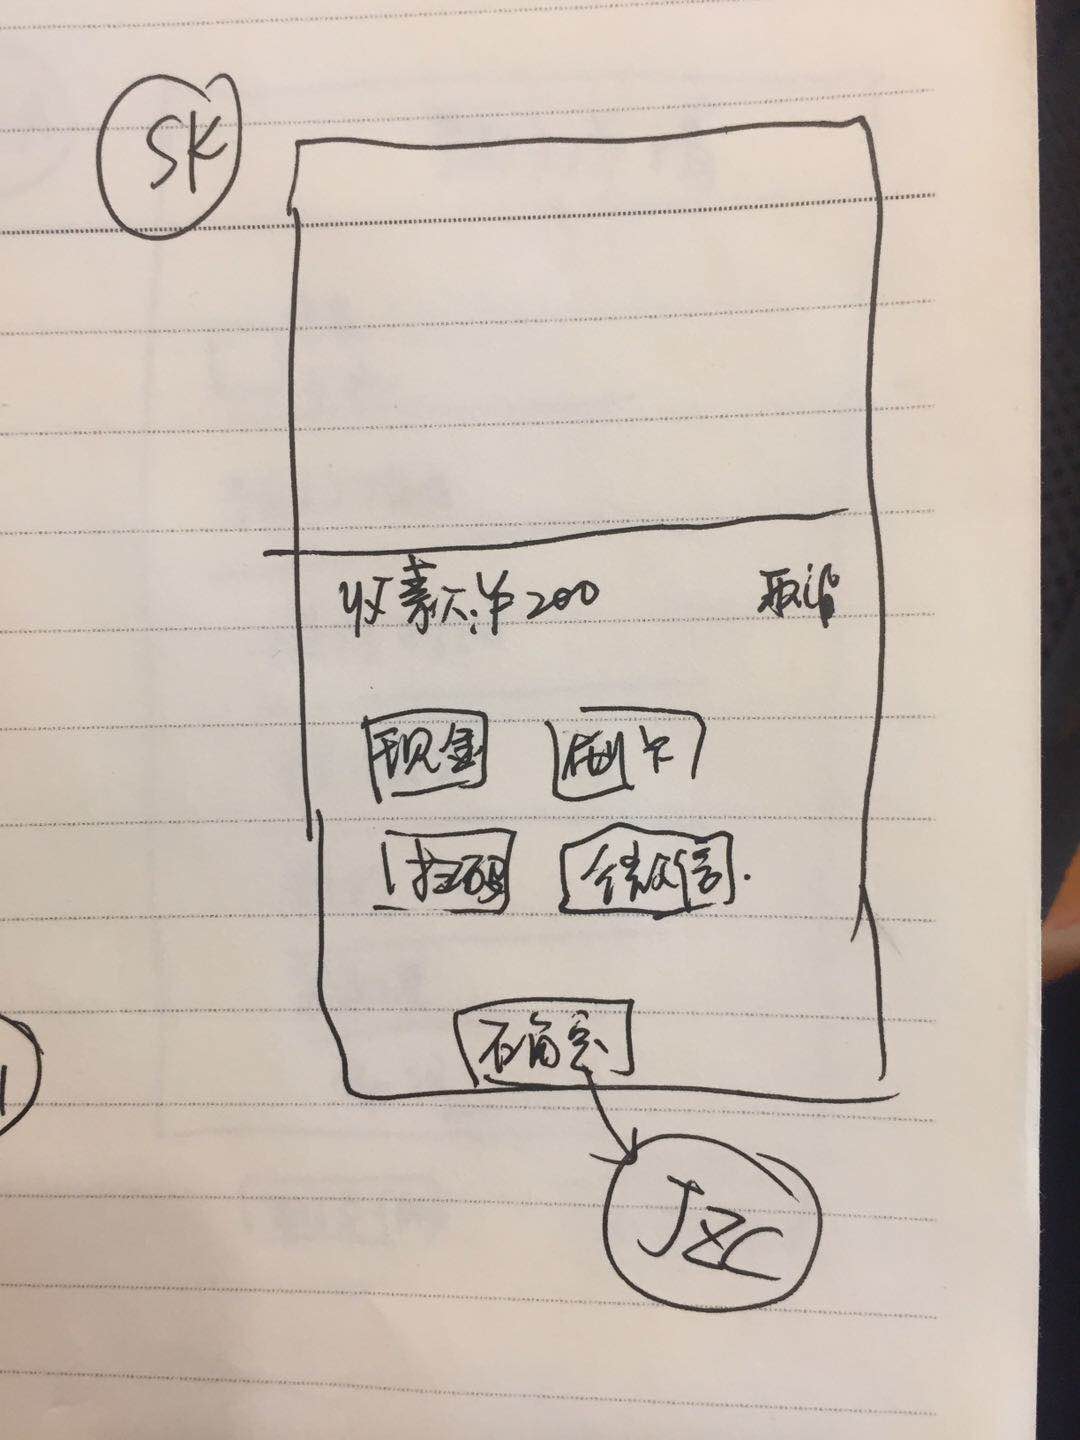 SK
收款:¥200 取消
现金 刷卡
扫码 微信
确定
JZC